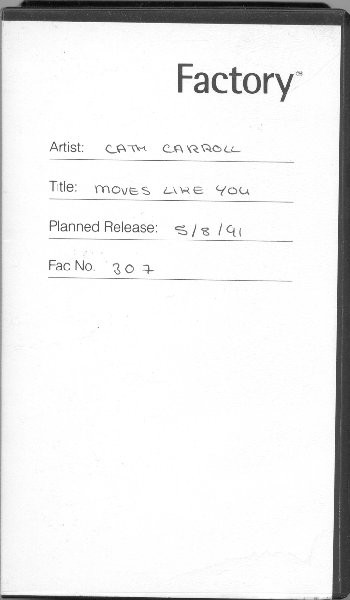 Factory™
Artist: CATH CARROLL
Title: MOVES LIKE YOU
Planned Release: 5/8/91
Fac No. 307